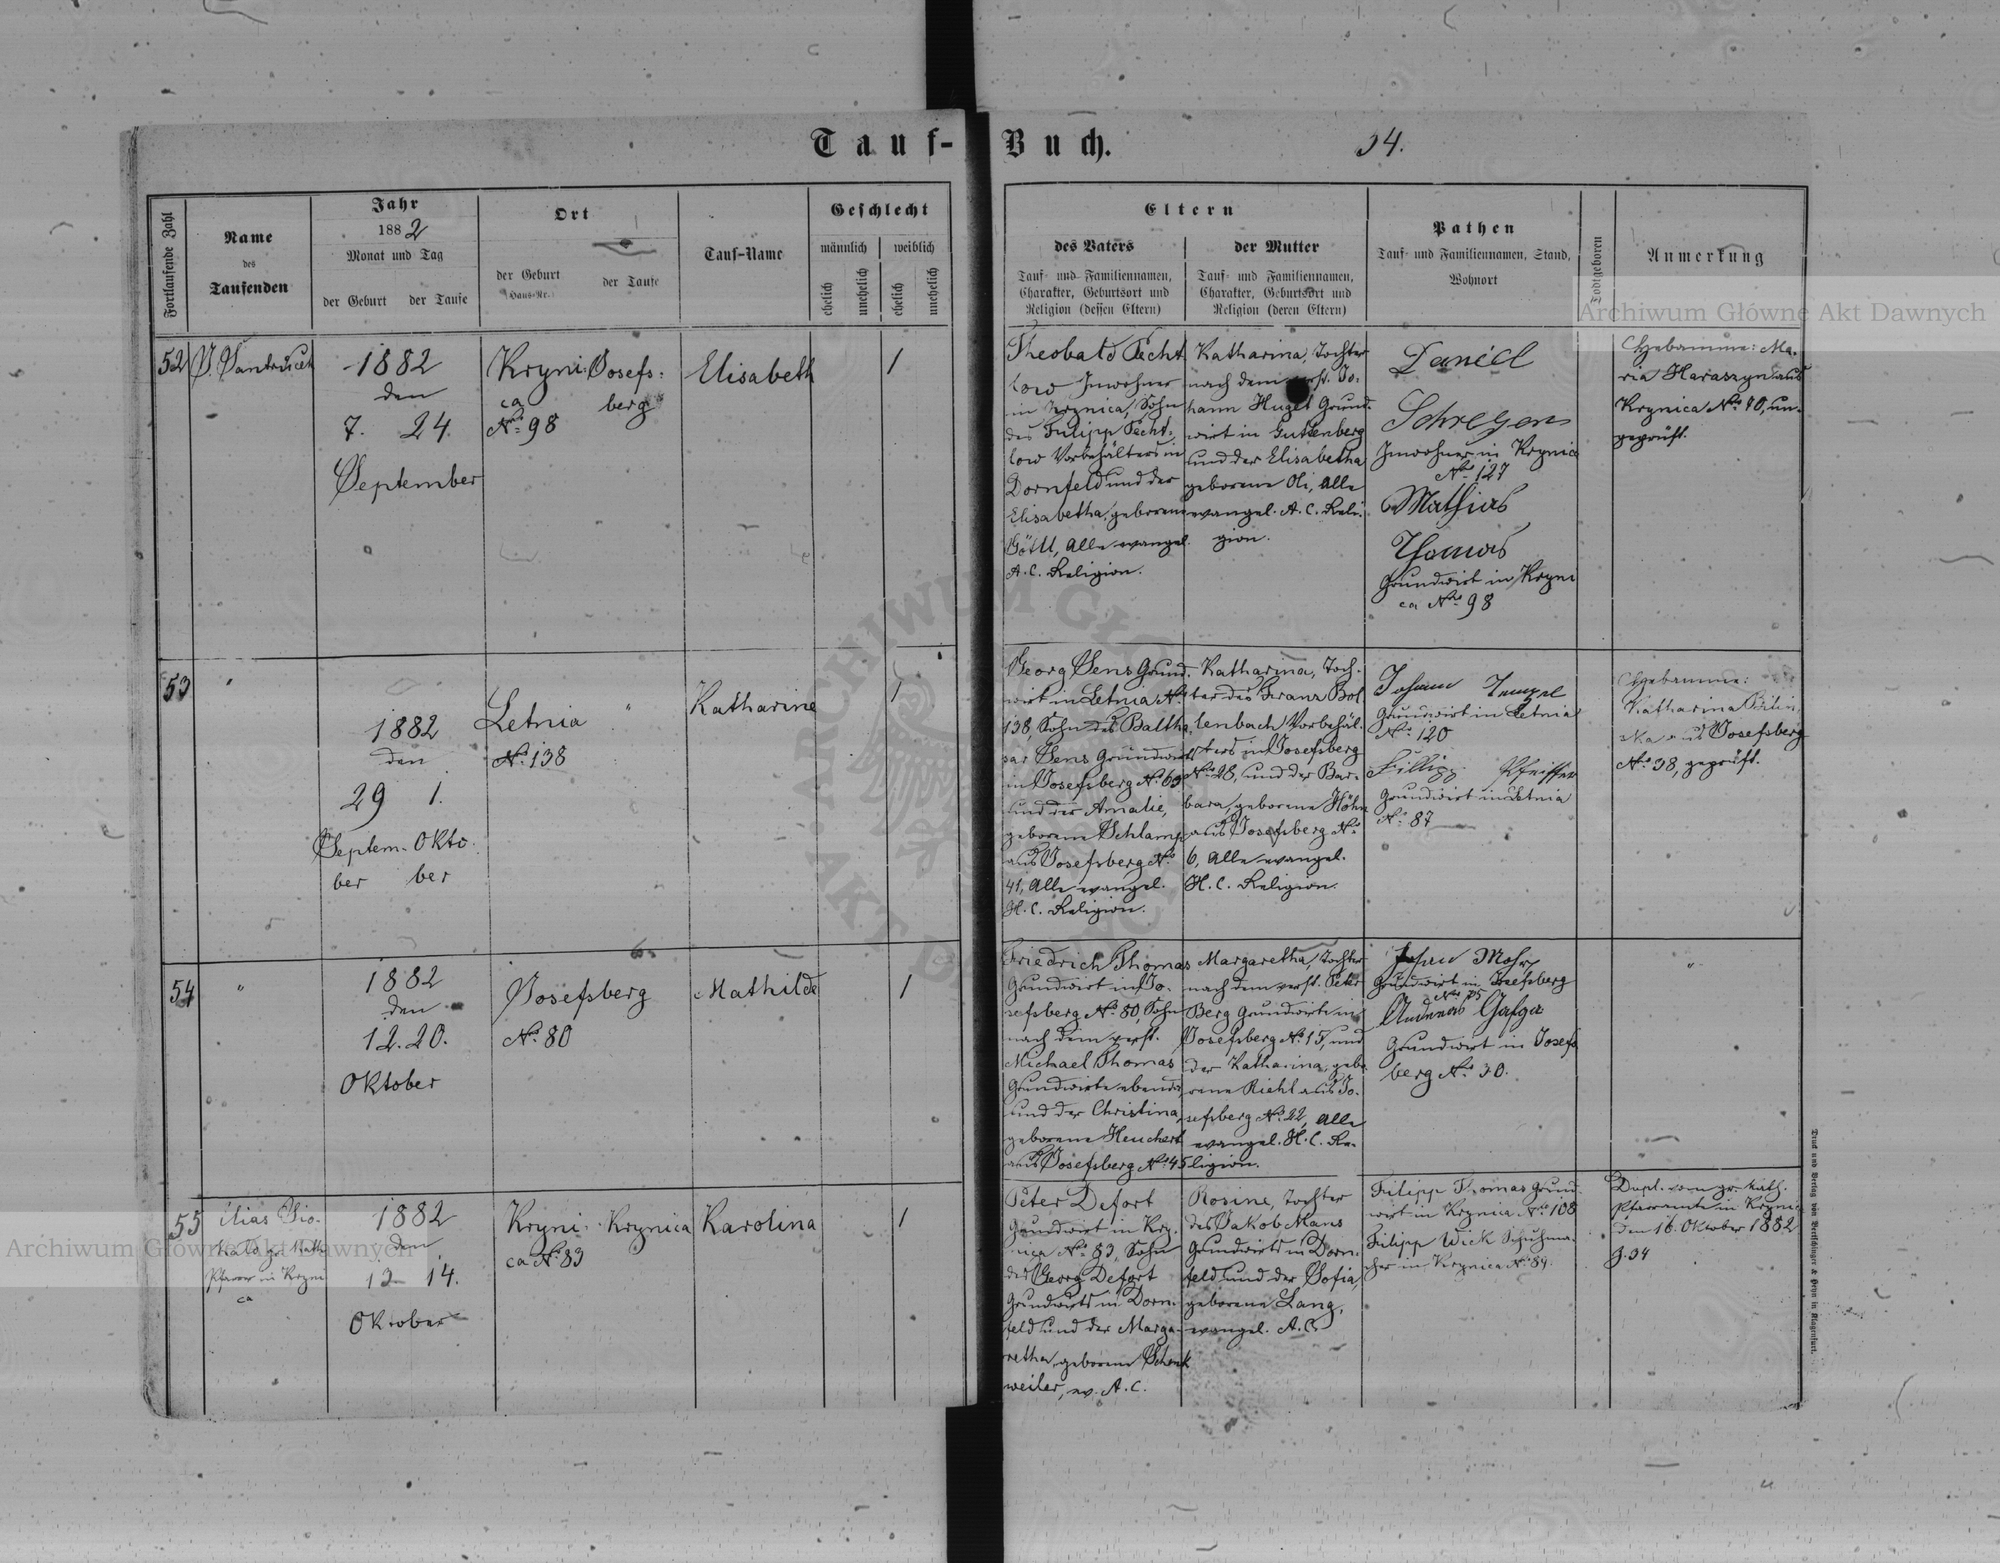 Tauf-Buch.
34.
Fortlaufende Zahl
Name
des
Taufenden
Jahr
1882
Monat und Tag
der Geburt
der Taufe
Ort
der Geburt
(Haus-Nr.)
der Taufe
Tauf-Name
Geschlecht
männlich
weiblich
ehelich
unehelich
ehelich
unehelich
Eltern
des Vaters
Tauf- und Familiennamen,
Charakter, Geburtsort und
Religion (dessen Eltern)
der Mutter
Tauf- und Familiennamen,
Charakter, Geburtsort und
Religion (deren Eltern)
Pathen
Tauf- und Familiennamen, Stand,
Wohnort
Todtgeboren
Anmerkung
Archiwum Główne Akt Dawnych
52
1882
den
7. 24.
September
Kryni-
ca
No 98
Josefs-
berg
Elisabeth
1
Theobald Pecht
low Inwohner
in Krynica, Sohn
des Filipp Pecht-
low Vorbehälters in
Dornfeld und der
Elisabetha, geborene
Göttl, Alle evangel.
A. C. Religion.
Katharina, Tochter
nach dem verst. Jo-
hann Hugel Grund-
wirt in Guttenberg
und der Elisabetha
geborene Oli, Alle
evangel. A. C. Reli-
gion.
Daniel
Schregens
Inwohner in Krynica
No 127
Mathias
Thomas
Grundwirt in Kryni
ca No 98
Hebamme: Ma-
ria Haraszyn aus
Krynica No 70, un-
geprüft.
53
"
1882
den
29 1.
Septem- Okto
ber ber
Letnia
No 138
"
Katharine
1
Georg Sens Grund-
wirt in Letnia No
138, Sohn des Baltha
sar Sens Grundwirts
in Josefsberg No 69
und der Amalie,
geborene Schlamp
aus Josefsberg No
41, Alle evangel.
H. C. Religion.
Katharina, Toch-
ter des Franz Bol
lenbach Vorbehäl-
ters in Josefsberg
No 28, und der Bar-
bara, geborene Höhn
aus Josefsberg No
6, Alle evangel.
H. C. Religion.
Johann Tempel
Grundwirt in Letnia
No 120
Fillipp Pfeiffer
Grundwirt in Letnia
No 87
Hebamme:
Katharina
aus Josefsberg
No 38, geprüft.
54
"
1882
den
12. 20.
Oktober
Josefsberg
No 80
Mathilde
1
Friedrich Thomas
Grundwirt in Jo-
sefsberg No 80, Sohn
nach dem verst.
Michael Thomas
Grundwirts ebenda
und der Christina,
geborene Heuchert
aus Josefsberg No 45
Margaretha, Tochter
nach dem verst. Peter
Berg Grundwirts in
Josefsberg No 15, und
der Katharina, gebo
rene Riehl aus Jo-
sefsberg No 22, Alle
evangel. H. C. Re-
ligion.
Johan Mohr
Grundwirt in Josefsberg
No 75
Andreas
Grundwirt in Josefs
berg No 30.
"
55
Ilias
gr. Kath
Pfarrer in Kryni
ca
1882
den
13 14.
Oktober
Kryni-
ca No 83
Krynica
Karolina
1
Peter Defort
Grundwirt in Kry-
nica No 83, Sohn
des Georg Defort
Grundwirts in Dorn-
feld und der Marga-
retha, geborene Schenk
weiler, ev. A. C.
Rosine, Tochter
des Jakob Mans
Grundwirts in Dorn-
feld und der Sofia,
geborene Lang,
evangel. A. C.
Filipp Thomas Grund-
wirt in Krynica No 108
Filipp Wick Schuhma-
cher in Krynica No 89.
Dupl. vom gr. kath.
Pfarramte in Kryni-
ca den 16. Oktober 1882
Z. 34
Archiwum Główne Akt Dawnych
ARCHIWUM GŁÓWNE AKT DAWNYCH
Druck und Verlag von Bertschinger & Heyn in Klagenfurt.